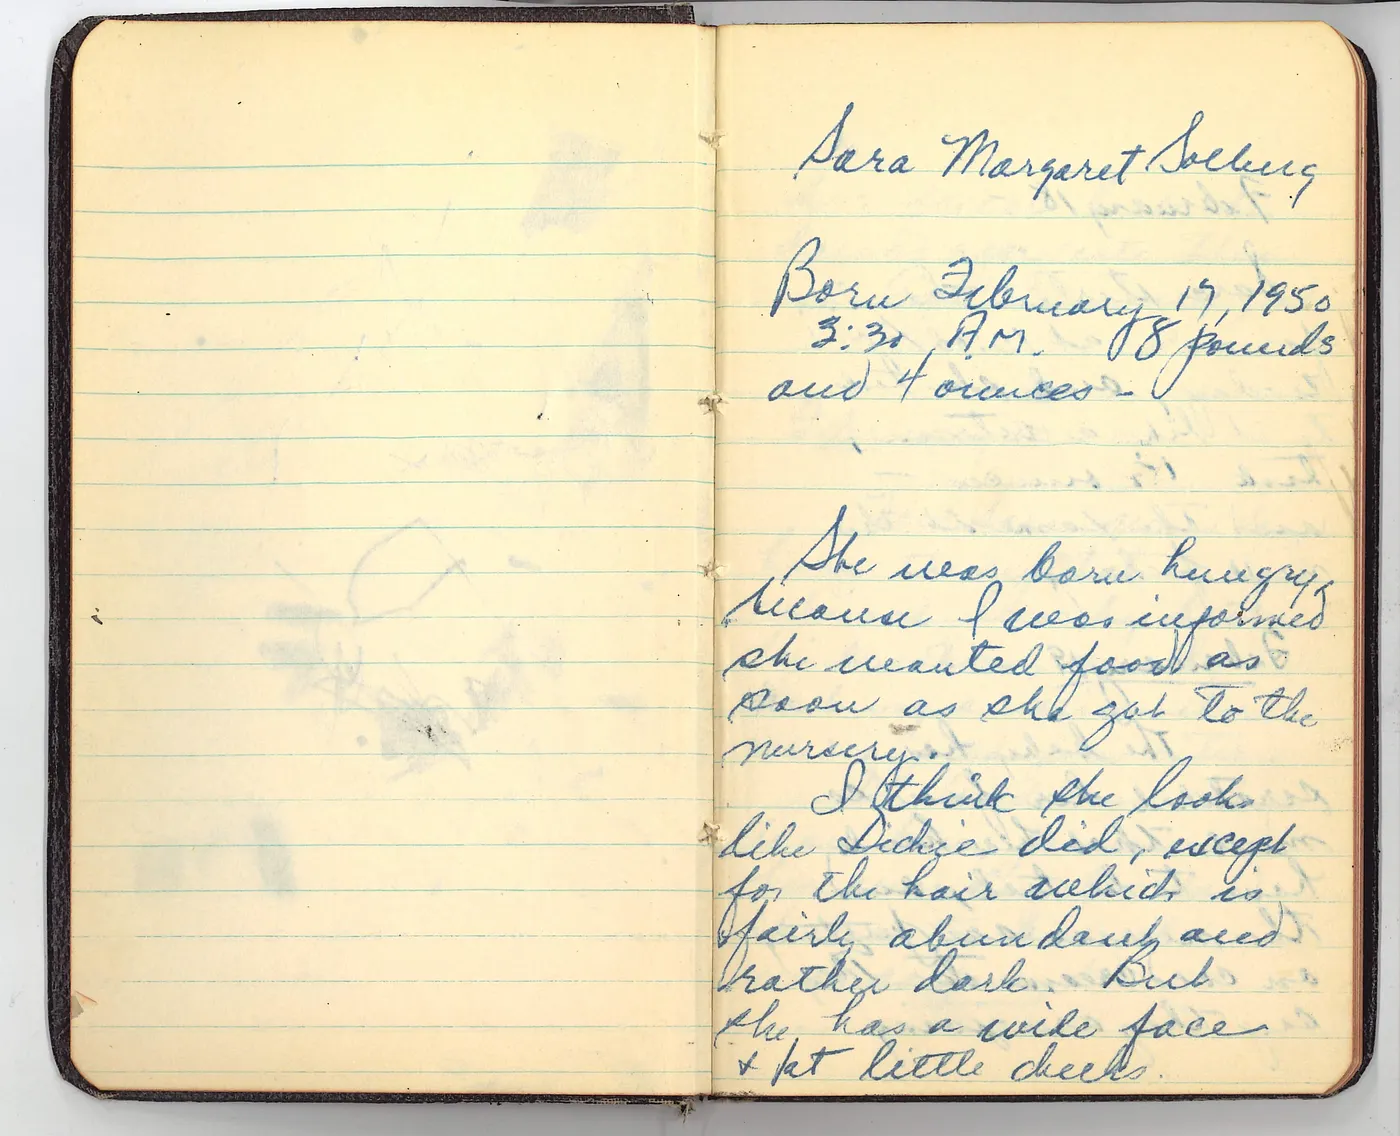 Sara Margaret Solberg
Born February 17, 1950
3:30 A.M. 8 pounds
and 4 ounces -
She was born hungry,
because I was informed
she wanted food as
soon as she got to the
nursery.
I think she looks
like Dickie did, except
for the hair which is
fairly abundant and
rather dark. But
she has a wide face
& fat little cheeks.